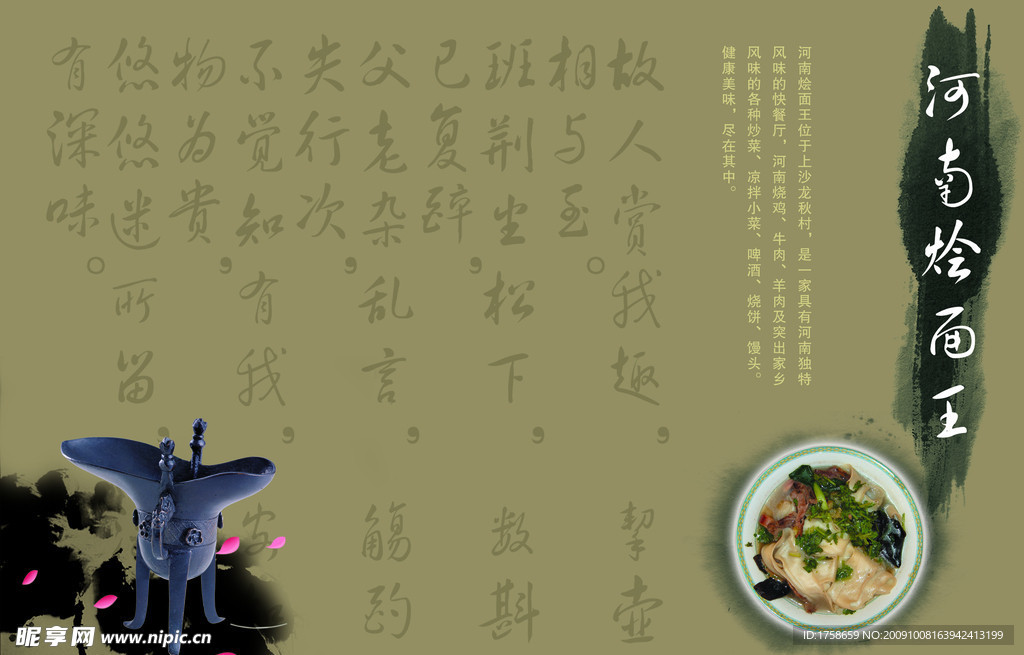 河南烩面王
河南烩面王位于上沙龙秋村，是一家具有河南独特
风味的快餐厅，河南烧鸡、牛肉、羊肉及突出家乡
风味的各种炒菜、凉拌小菜、啤酒、烧饼、馒头。
健康美味，尽在其中。
故人赏我趣，挈壶
相与至。
班荆坐松下，数斟
已复醉，
父老杂乱言，觞酌
失行次，
不觉知有我，安
物为贵，
悠悠迷所留，
有深味。
昵享网 www.nipic.cn
ID:1758659 NO:20091008163942413199